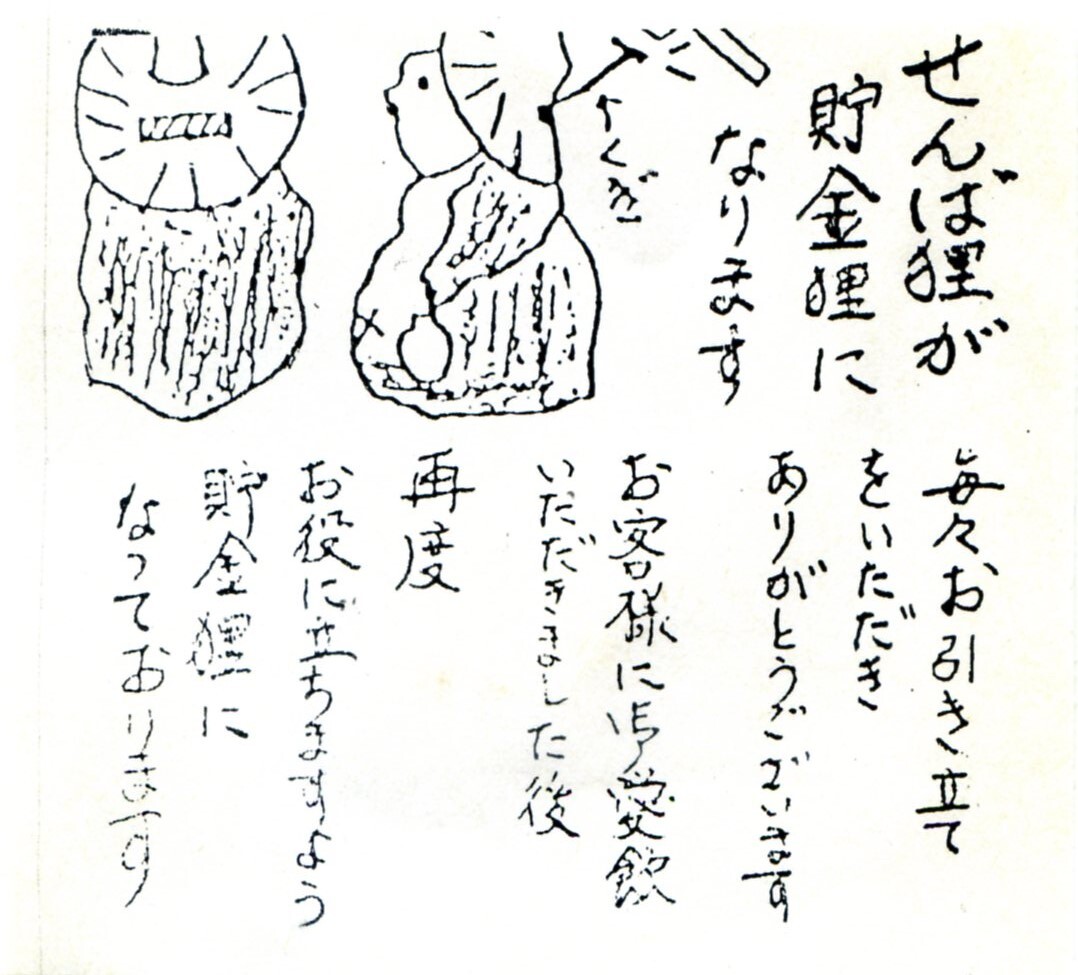 せんば狸が
貯金狸に
なります
くぎ
毎々お引き立て
をいただき
ありがとうございます
お客様に御愛飲
いただきました後
再度
お役に立ちますよう
貯金狸に
なっております